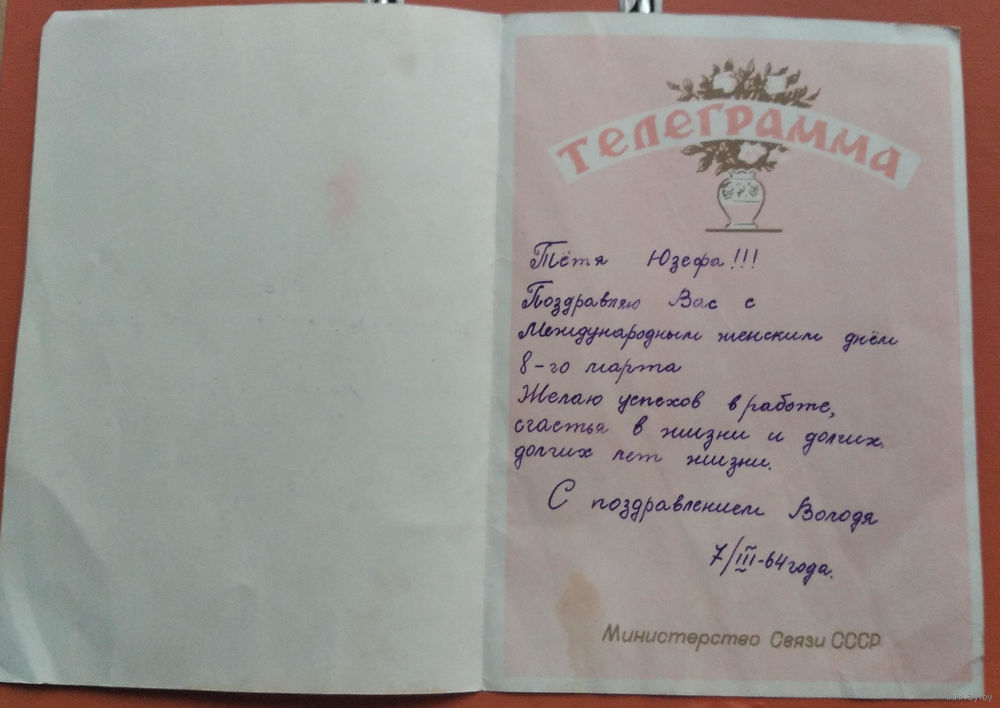 ТЕЛЕГРАММА
Тётя Юзефа!!!
Поздравляю Вас с
Международным женским днём
8-го марта
Желаю успехов в работе,
счастья в жизни и долгих
долгих лет жизни.
С поздравлением Володя
7/III-64 года.
Министерство Связи СССР